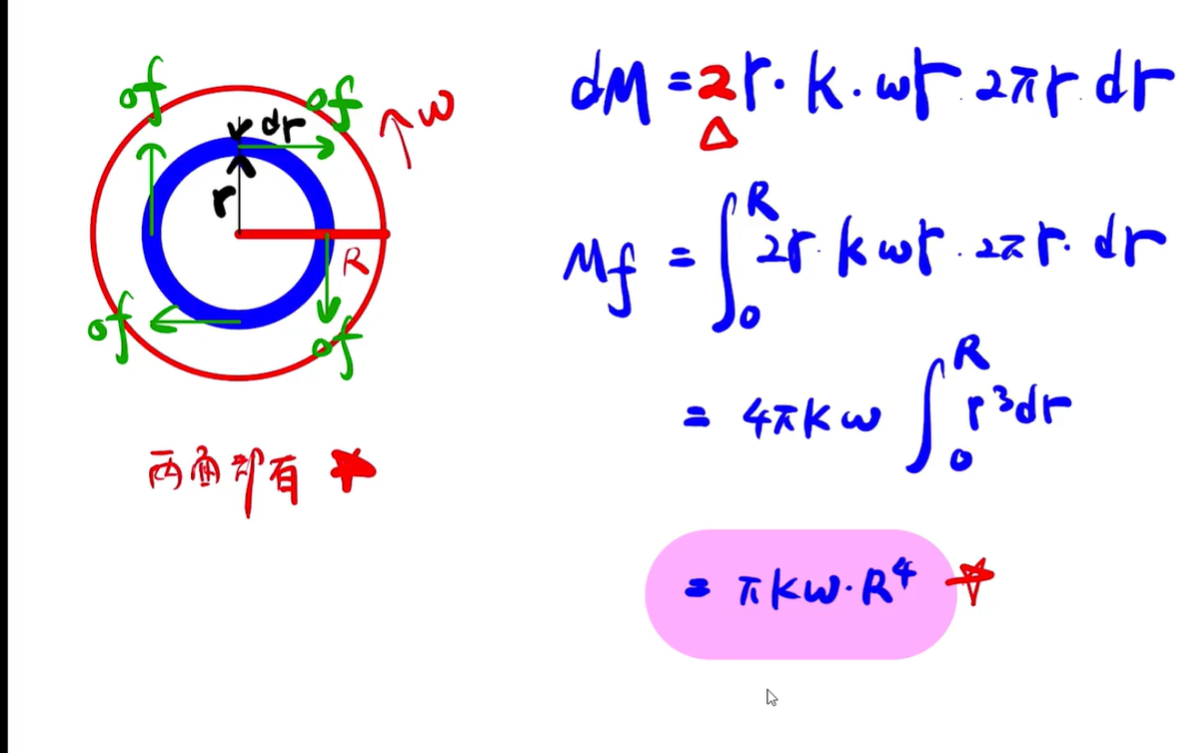 of
of
dr
↑ω
r
R
of
of
两面都有 ★
dM = 2r · k · ωr · 2πr · dr
△
Mf = ∫₀ᴿ 2r · kωr · 2πr · dr
= 4πkω ∫₀ᴿ r³dr
= πkω · R⁴ ☆